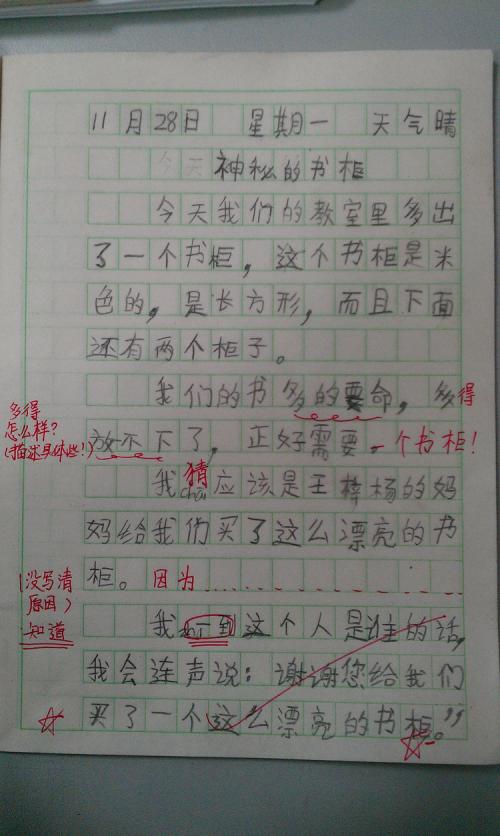 11月28日 星期一 天气晴
今天神秘的书柜
今天我们的教室里多出
了一个书柜，这个书柜是米
色的，是长方形，而且下面
还有两个柜子。
我们的书多的要命，多得
多得
怎么样？
(描述具体些!)
放不下了，正好需要一个书柜！
我猜chāi应该是王梓杨的妈
妈给我们买了这么漂亮的书
柜。因为
(没写清
原因)
知道
我到这个人是谁的话，
我会连声说：谢谢您给我们
买了一个这么漂亮的书柜。”